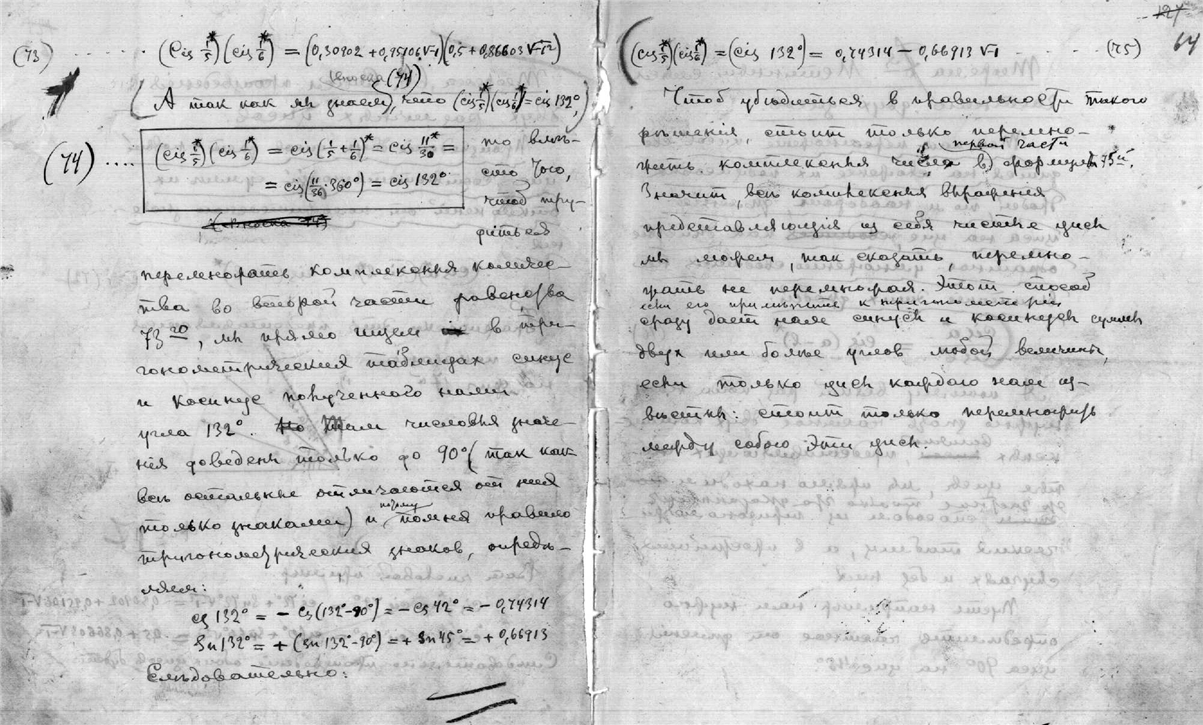 (73) ........ (Cis 1/5*)(cis 1/6*) = (0,30902 + 0,95106√-1)(0,5 + 0,86603√-1)
(74)
(А так какъ мы знаемъ, что (cis 1/5*)(cis 1/6*) = cis 132°,)
(74) .... (cis 1/5*)(cis 1/6*) = cis(1/5 + 1/6)* = cis 11/30* =
= cis(11/30·360°) = cis 132°
то вмѣ-
сто того,
чтоб тру-
диться
перемножать комплексныя количес-
тва во второй части равенства
73го, мы прямо ищем в три-
гонометрических таблицах синус
и косинус полученного нами
угла 132°. Там числовыя значе-
ния доведены только до 90° (так как
всѣ остальные отличаются от них
только знаками) и потому помня правило
тригонометрических знаков, опредѣ-
ляем:
cs 132° = - cs(132°-90°) = - cs 42° = - 0,74314
Sn 132° = + (sn 132°-90°) = + sn 45° = + 0,66913
Слѣдовательно:
127
64
(cis 1/5*)(cis 1/6*) = (cis 132°) = 0,74314 - 0,66913 √-1 ........ (75)
Чтоб убѣдиться в правильности такого
рѣшения, стоит только перемно-
первой части
жить комплексныя числа в формулѣ 75й.
Значит, всѣ комплексныя выражения
представляющия из себя чистые цисы
мы можем, так сказать, перемно-
жать не перемножая. Этот способ
если его примѣнить к тригонометрии
сразу дает нам синусы и косинусы суммы
двух или болѣе углов любой величины,
если только цисы каждого нам из-
вѣстны: стоит только перемножить
между собою эти цисы.